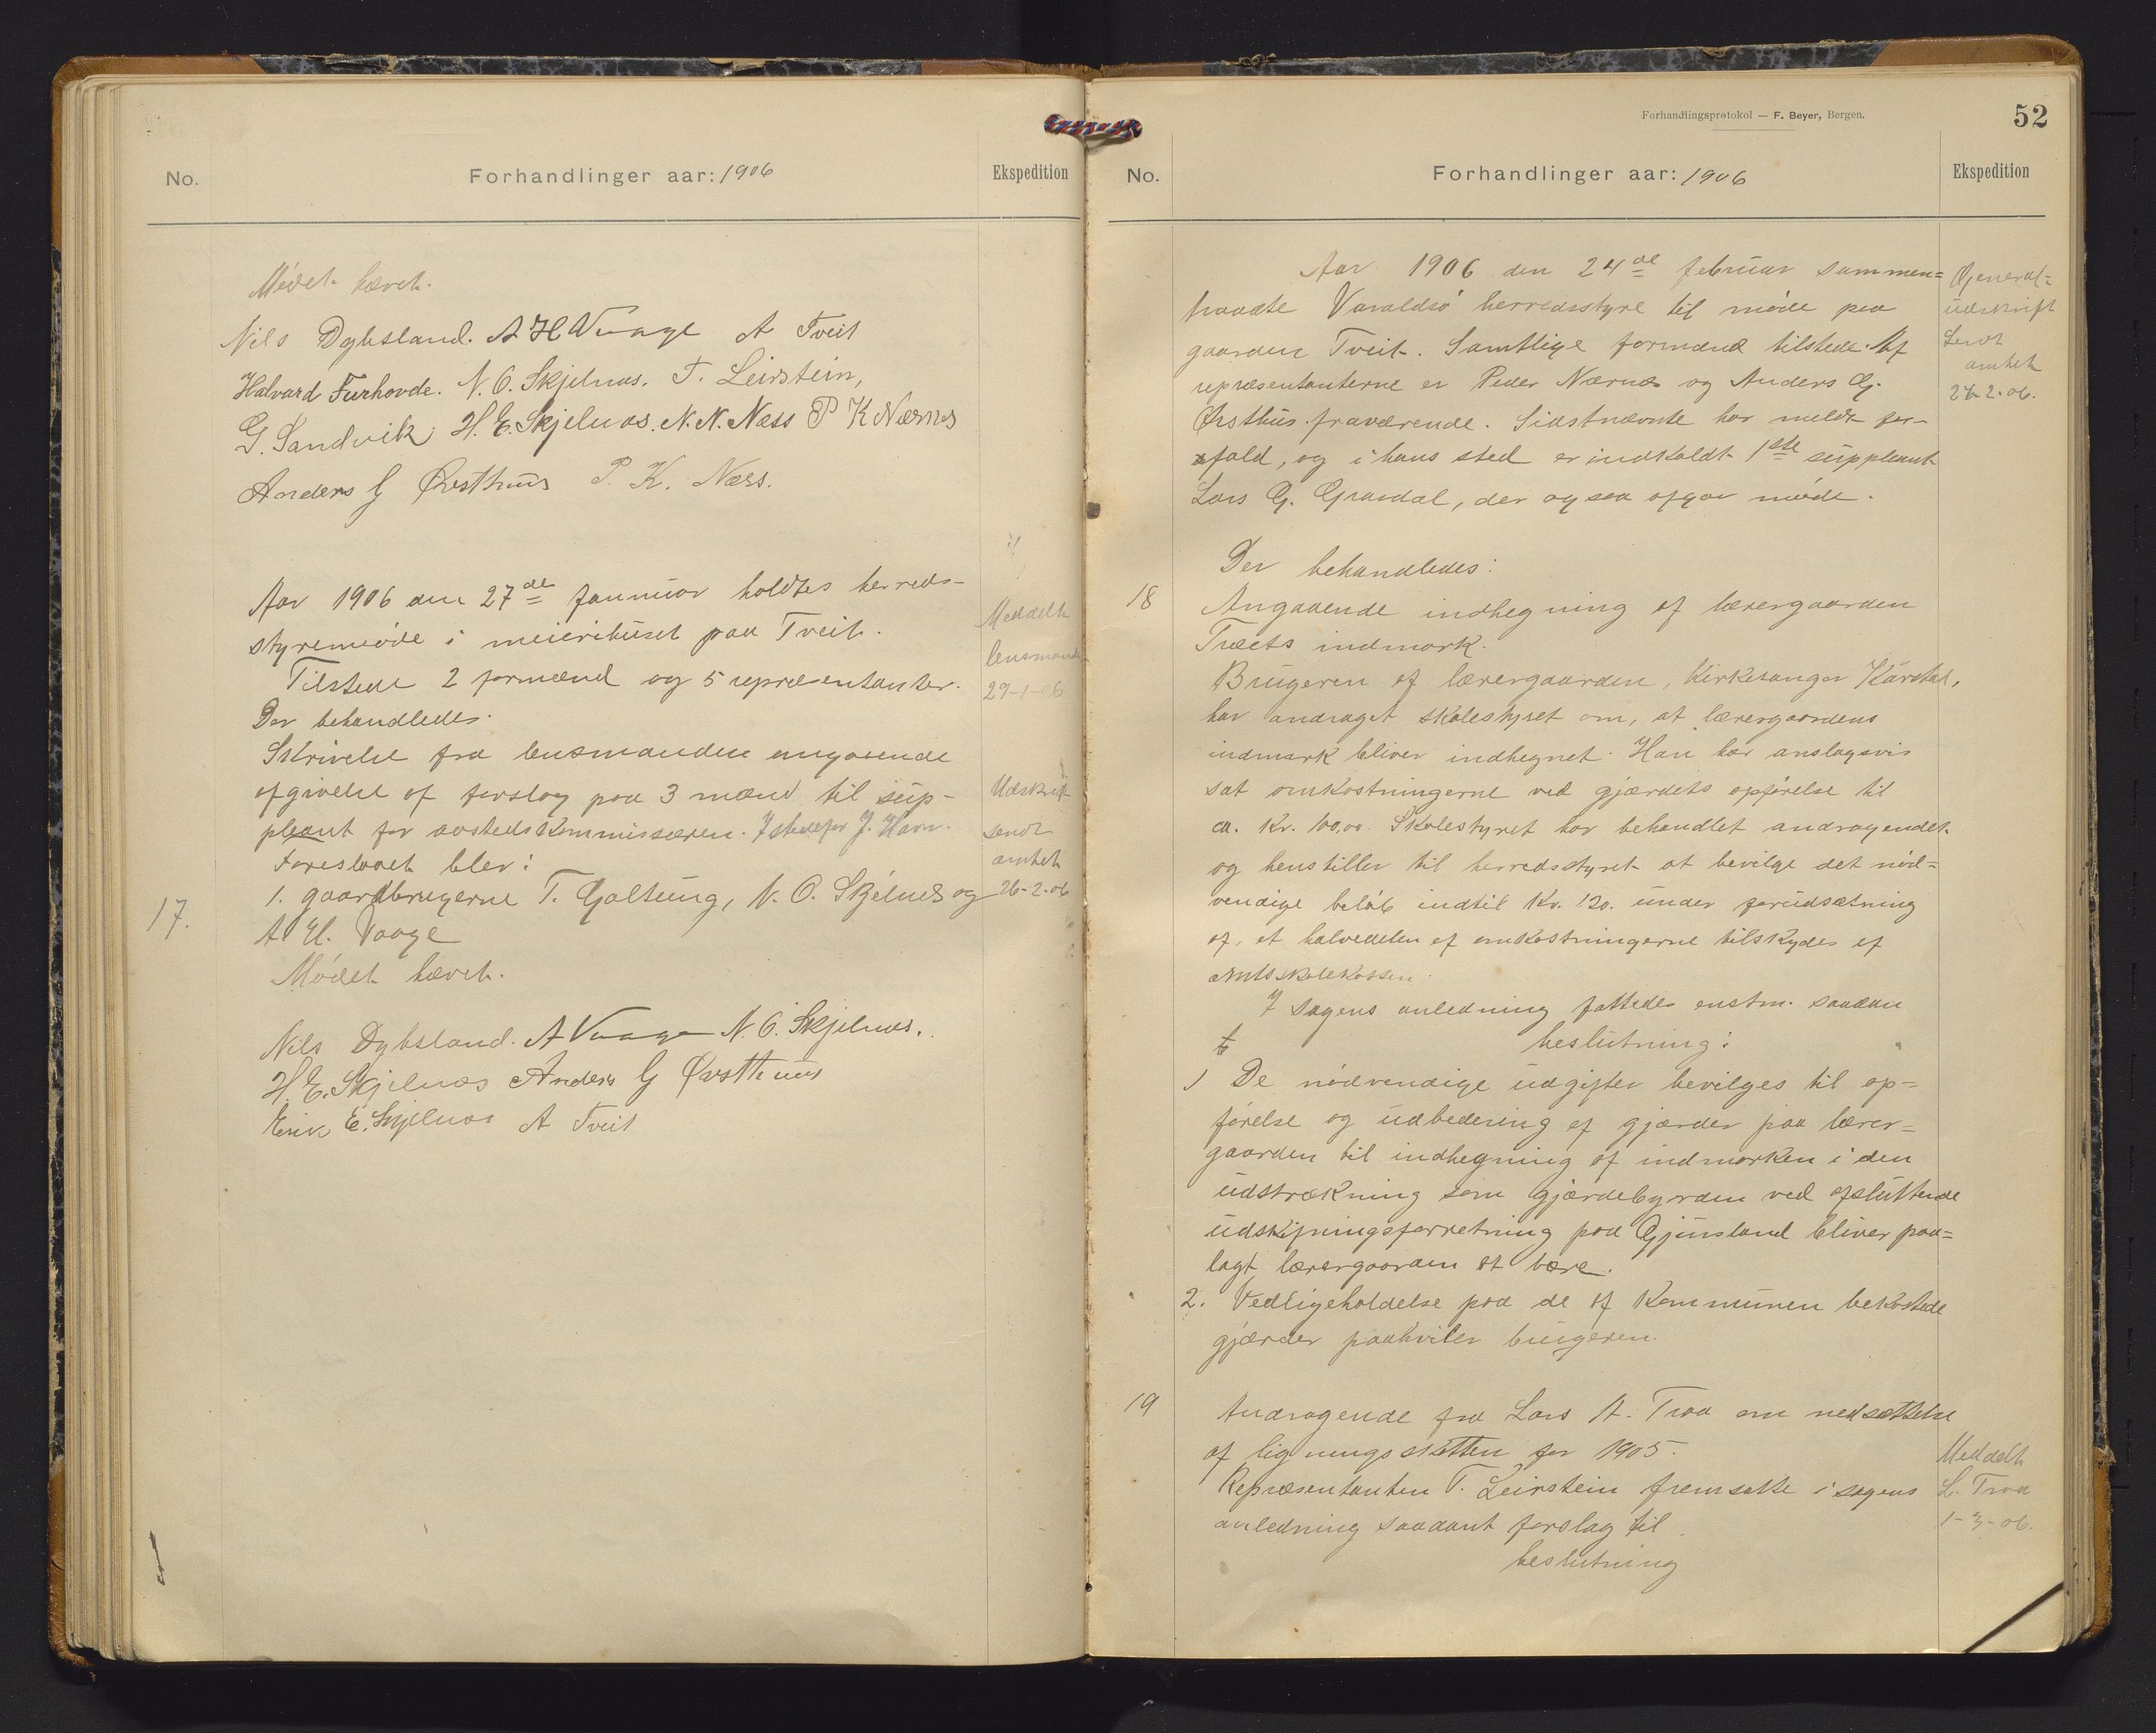 No.
Forhandlinger aar: 1906
Ekspedition
Mödet hævet.
Nils Dybsland. A H Vaage A Tveit
Halvard Furhovde. N. O. Skjelnæs. T. Leirstein,
G. Sandvik H. E. Skjelnæs. N. N. Næss P K Nærnes
Anders G Øvsthuus P. K. Næss.
Aar 1906 den 27de januar holdtes herreds-
styremöde i meierihuset paa Tveit.
Tilstede 2 formænd og 5 repræsentanter.
Der behandledes.
Skrivelse fra lensmanden angaaende
afgivelse af forslag paa 3 mænd til sup-
pleant for aastedskommissæren. Istedefor J.
Foreslaaet blev:
17.
1. gaardbrugerne T. Galtung, N. O. Skjelnes og
A H. Vaage
Mödet hævet.
Nils Dybsland. A Vaage N. O. Skjelnæs.
H. E. Skjelnæs Anders G Øvsthuus
Erik E. Skjelnæs A Tveit
Meddelt
lensmand
29-1-06
Udskrift
sendt
amtet
26-2-06
Forhandlingsprotokol — F. Beyer, Bergen.
52
No.
Forhandlinger aar: 1906
Ekspedition
Aar 1906 den 24de februar sammen=
traadte Varaldsö herredsstyre til möde paa
gaarden Tveit. Samtlige formænd tilstede. Af
repræsentanterne er Peder Nærnæs og Anders G.
Øvsthus fraværende. Sidstnævnte har meldt for-
fald, og i hans sted er indkaldt 1ste suppleant
Lars G. Grasdal, der ogsaa afgav möde.
General=
udskrift
Sendt
amtet
26-2-06.
Der behandledes:
18
Angaaende indhegning af lærergaarden
Træets indmark.
Brugeren af lærergaarden, kirkesanger Kårdal,
har andraget skolestyret om, at lærergaardens
indmark bliver indhegnet. Han har anslagsvis
sat omkostningerne ved gjærdets opförelse til
ca. Kr. 100,00. Skolestyret har behandlet andragendet
og henstiller til herredsstyret at bevilge det nöd=
vendige belöb indtil Kr. 120. under forudsætning
af, at halvedelen af omkostningerne tilskydes af
amtsskolekassen.
I sagens anledning fattedes enstm. saadan
beslutning:
1 De nödvendige udgifter bevilges til op=
förelse og udbedering af gjærder paa lærer=
gaarden til indhegning af indmarken i den
udstrækning som gjærdebyrden ved afsluttende
udskiftningsforretning paa Gjuvsland bliver paa=
lagt lærergaarden at bære.
2. Vedligeholdelse paa de af Kommunen bekostede
gjærder paahviler brugeren.
19
Andragende fra Lars A. Traa om nedsættelse
af ligningsskatten for 1905.
Repræsentanten T. Leirstein fremsatte i sagens
anledning saadant forslag til
beslutning
Meddelt
L. Traa
1-3-06.